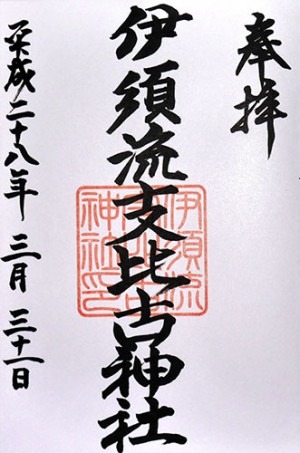 奉拝
伊須流支比古神社
平成二十八年 三月 三十一日
伊須流
支比古
神社印